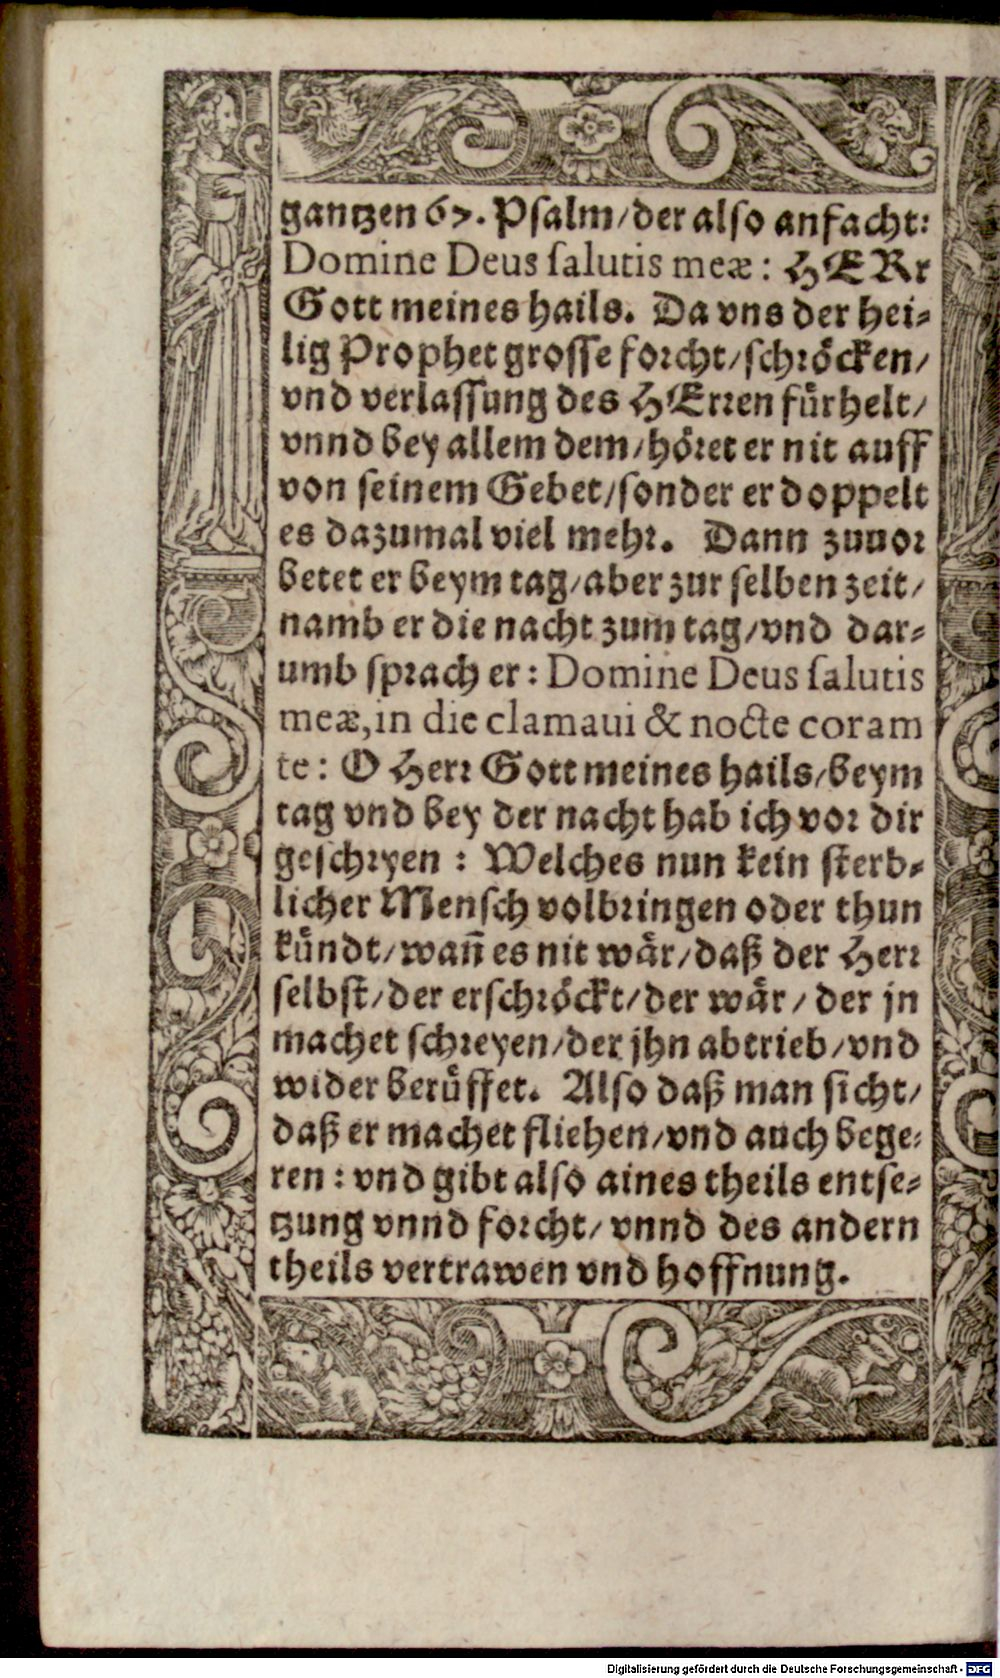 gantzen 67. Psalm/der also anfacht:
Domine Deus ſalutis meæ: HERr
Gott meines hails. Da vns der hei⸗
lig Prophet groſſe forcht/ſchröcken/
vnd verlaſſung des HErren fürhelt/
vnnd bey allem dem/höret er nit auff
von ſeinem Gebet/ſonder er doppelt
es dazumal viel mehr. Dann zuuor
betet er beym tag/aber zur ſelben zeit/
namb er die nacht zum tag/vnd dar⸗
umb ſprach er: Domine Deus ſalutis
meæ,in die clamaui & nocte coram
te: O Herr Gott meines hails/beym
tag vnd bey der nacht hab ich vor dir
geſchryen: Welches nun kein ſterb⸗
licher Menſch volbringen oder thun
kündt/wañ es nit wär/daß der Herr
ſelbſt/der erſchröckt/der wär/ der jn
machet ſchreyen/der jhn abtrieb/vnd
wider berüffet. Alſo daß man ſicht/
daß er machet fliehen/vnd auch bege⸗
ren: vnd gibt alſo aines theils entſe⸗
tzung vnnd forcht/ vnnd des andern
theils vertrawen vnd hoffnung.
Digitalisierung gefördert durch die Deutsche Forschungsgemeinschaft - DFG